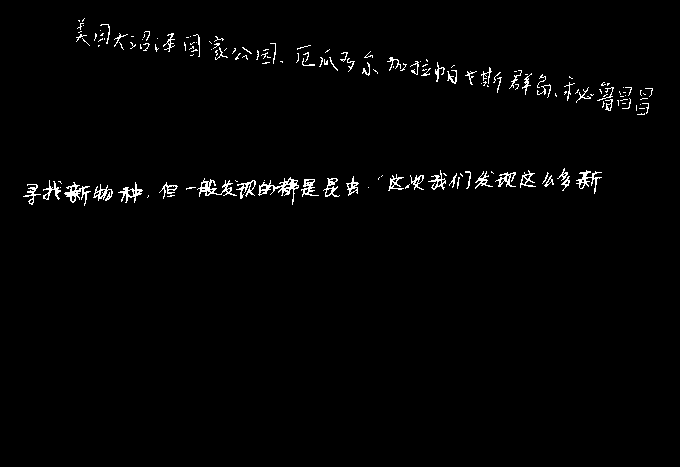 美国大沼泽国家公园、厄瓜多尔加拉帕戈斯群岛、秘鲁昌昌
寻找新物种,但一般发现的都是昆虫.“这次我们发现这么多新